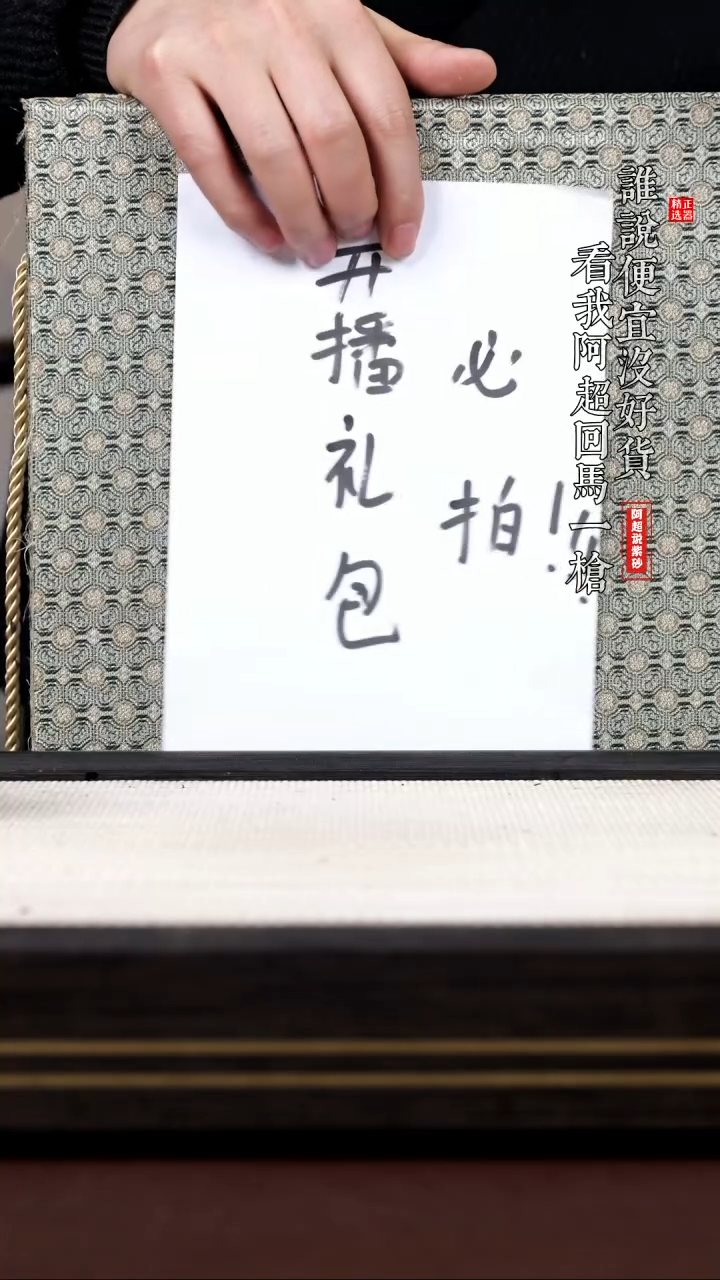 开播礼包
必拍!!
誰說便宜沒好貨
看我阿超回馬一槍
精正
选器
阿超说紫砂